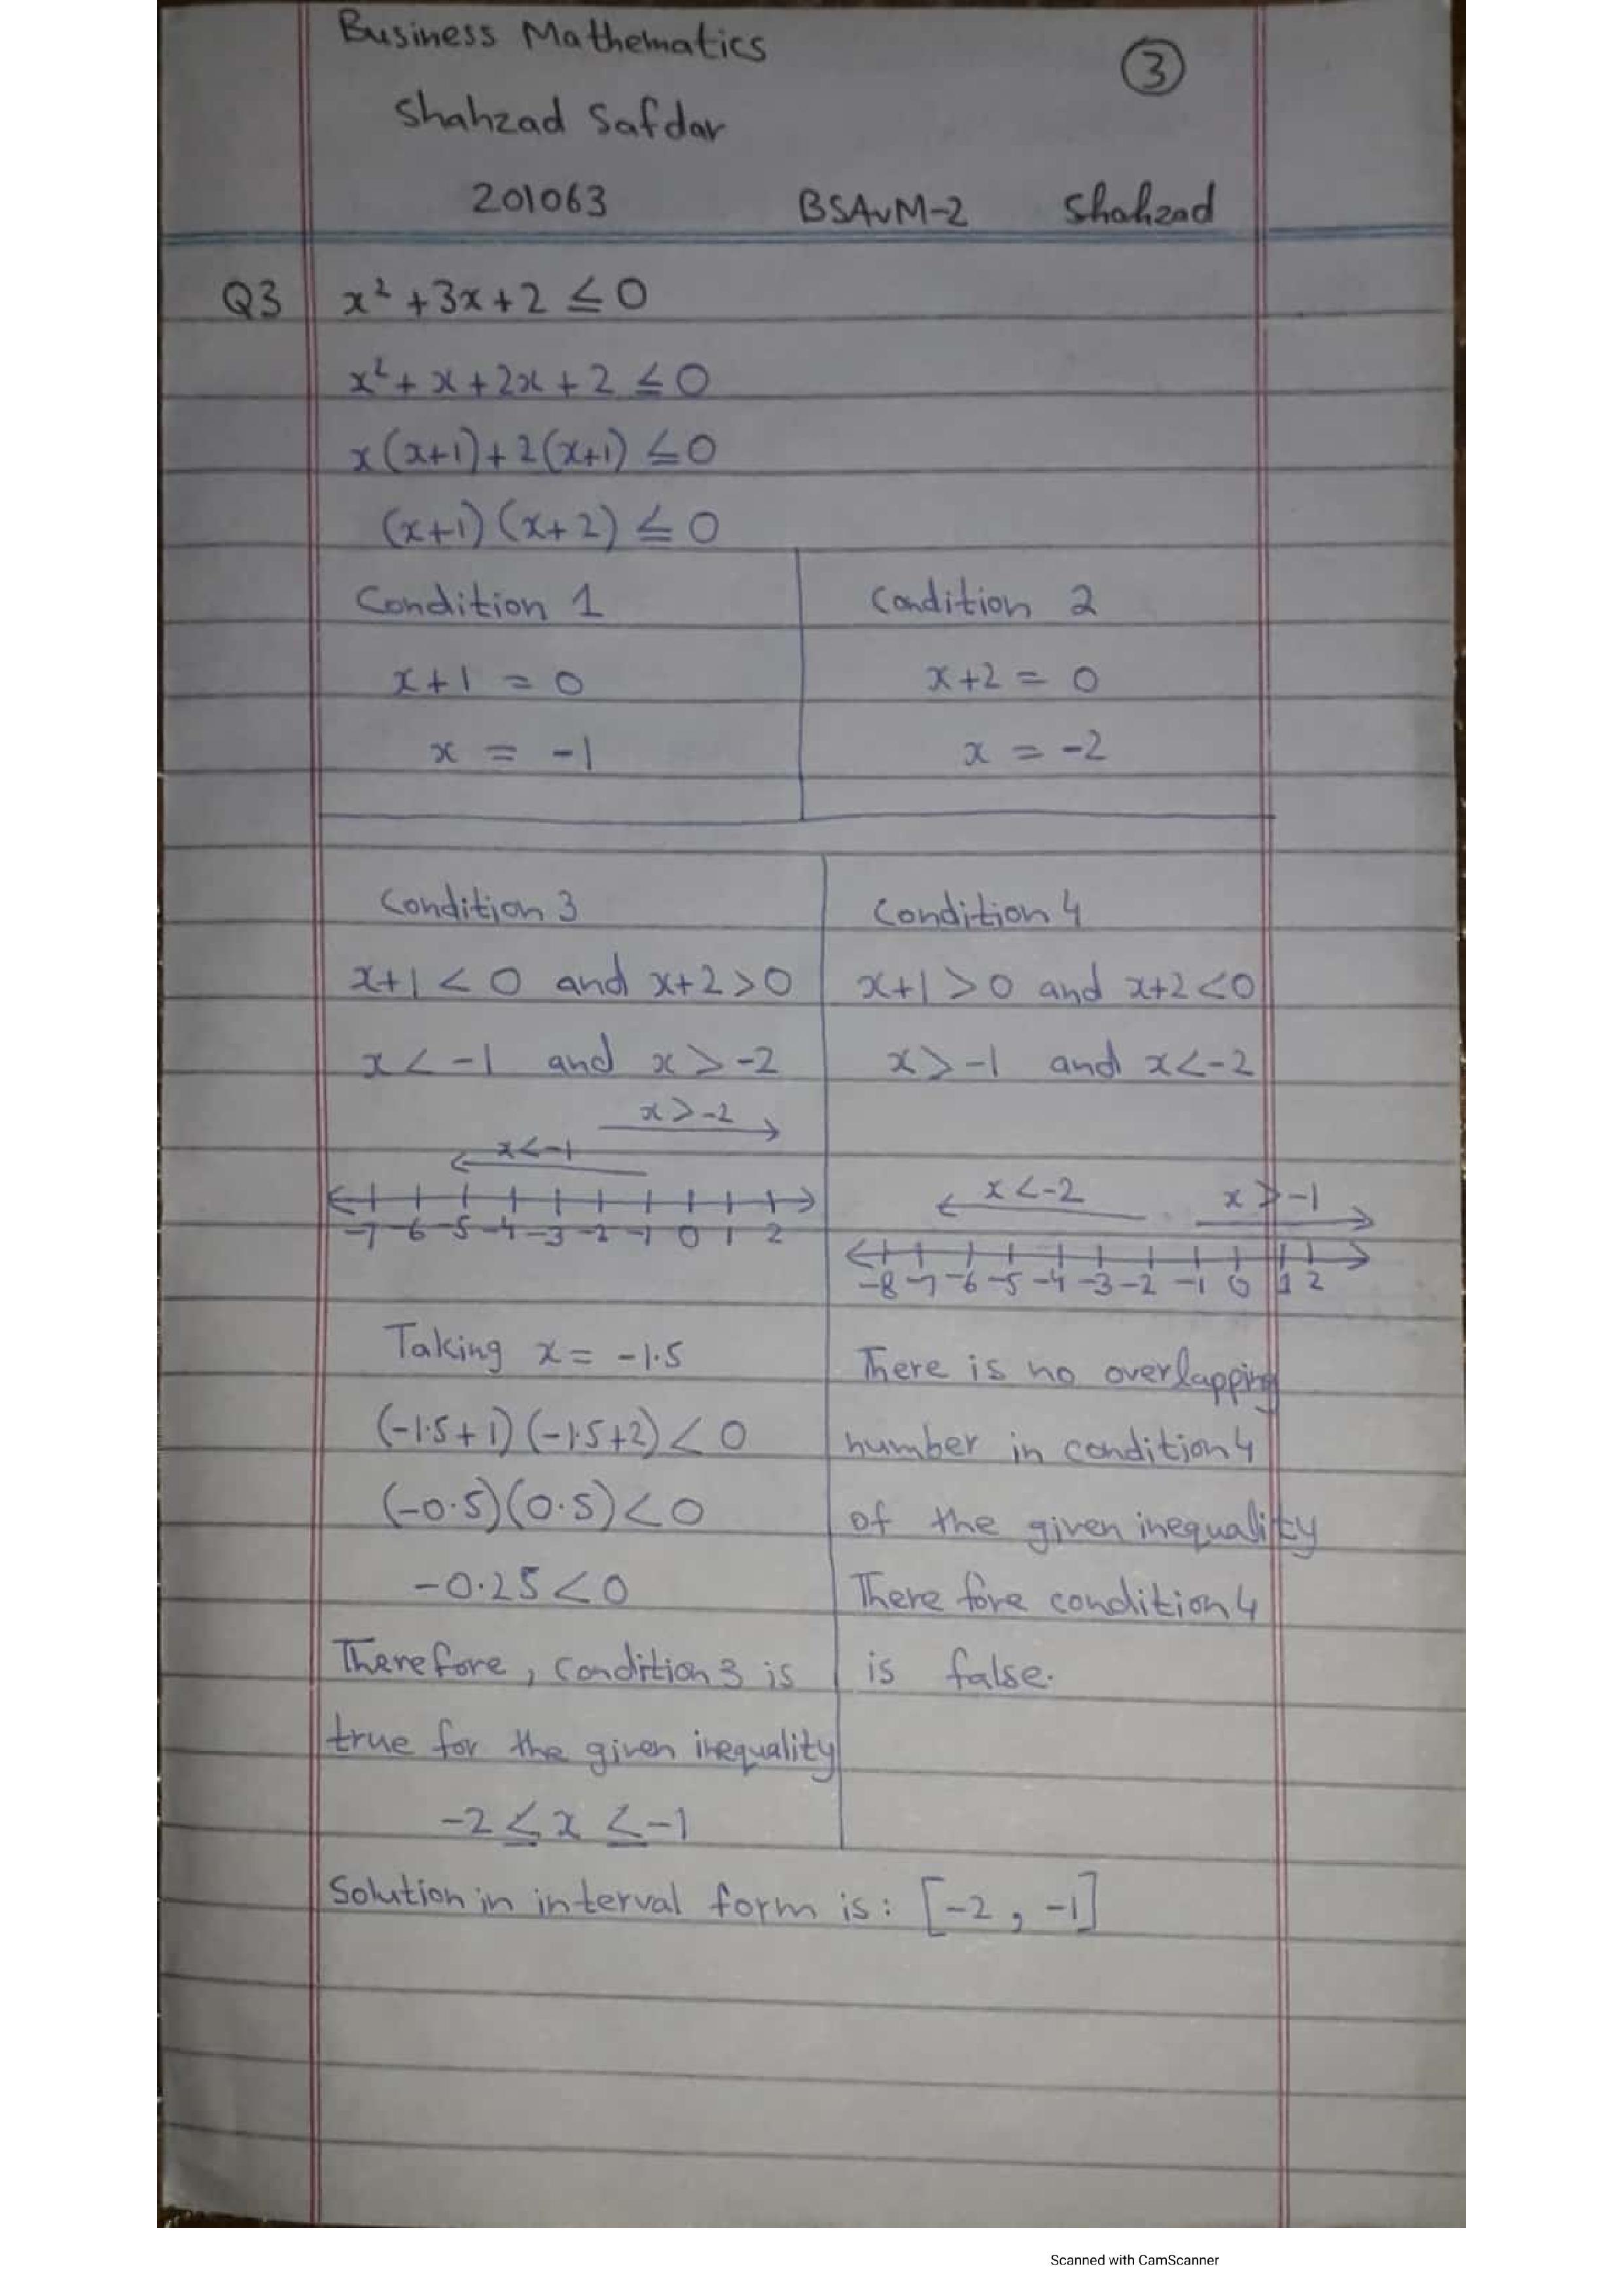 Business Mathematics
3
Shahzad Safdar
201063 BSAvM-2 Shahzad
Q3 x² + 3x + 2 ≤ 0
x² + x + 2x + 2 ≤ 0
x(x+1) + 2(x+1) ≤ 0
(x+1)(x+2) ≤ 0
Condition 1
x+1 = 0
x = -1
Condition 2
x+2 = 0
x = -2
Condition 3
x+1 < 0 and x+2 > 0
x < -1 and x > -2
x > -2
x < -1
-7 -6 -5 -4 -3 -2 -1 0 1 2
Taking x = -1.5
(-1.5+1)(-1.5+2) < 0
(-0.5)(0.5) < 0
-0.25 < 0
Therefore, condition 3 is
true for the given inequality
-2 ≤ x ≤ -1
Condition 4
x+1 > 0 and x+2 < 0
x > -1 and x < -2
x < -2 x > -1
-8 -7 -6 -5 -4 -3 -2 -1 0 1 2
There is no overlapping
number in condition 4
of the given inequality
There fore condition 4
is false.
Solution in interval form is: [-2, -1]
Scanned with CamScanner